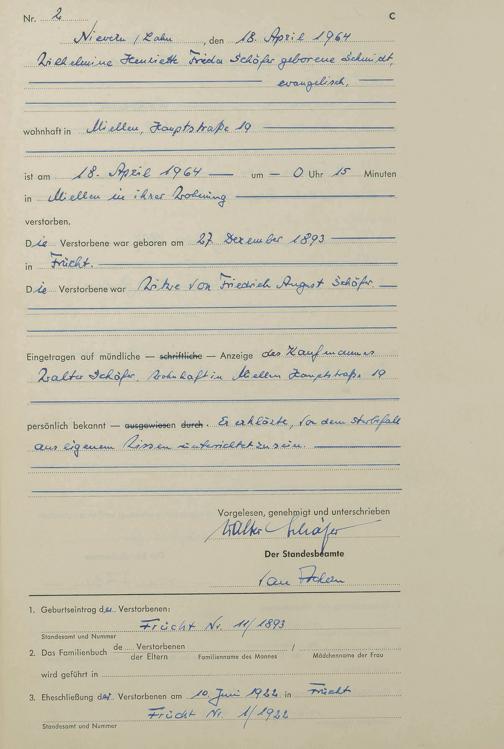 Nr. 2 C
Nievern / Lahn, den 18. April 1964
Wilhelmine Henriette Frieda Schäfer geborene Schmidt,
evangelisch,
wohnhaft in Miellen, Hauptstraße 19
ist am 18. April 1964 — um — 0 Uhr 15 Minuten
in Miellen in ihrer Wohnung
verstorben.
Die Verstorbene war geboren am 27. Dezember 1893
in Frücht.
Die Verstorbene war Witwe von Friedrich August Schäfer.
Eingetragen auf mündliche — schriftliche — Anzeige des Kaufmannes
Walter Schäfer, wohnhaft in Miellen Hauptstraße 19
persönlich bekannt — ausgewiesen durch. Er erklärte, von dem Sterbefall
aus eigenem Wissen unterrichtet zu sein.
Vorgelesen, genehmigt und unterschrieben
Walter Schäfer
Der Standesbeamte
1. Geburtseintrag der Verstorbenen:
Frücht Nr. 11/1893
Standesamt und Nummer
2. Das Familienbuch de Verstorbenen /
der Eltern Familienname des Mannes Mädchenname der Frau
wird geführt in
3. Eheschließung der Verstorbenen am 10. Juni 1922 in Frücht
Frücht Nr. 1/1922
Standesamt und Nummer